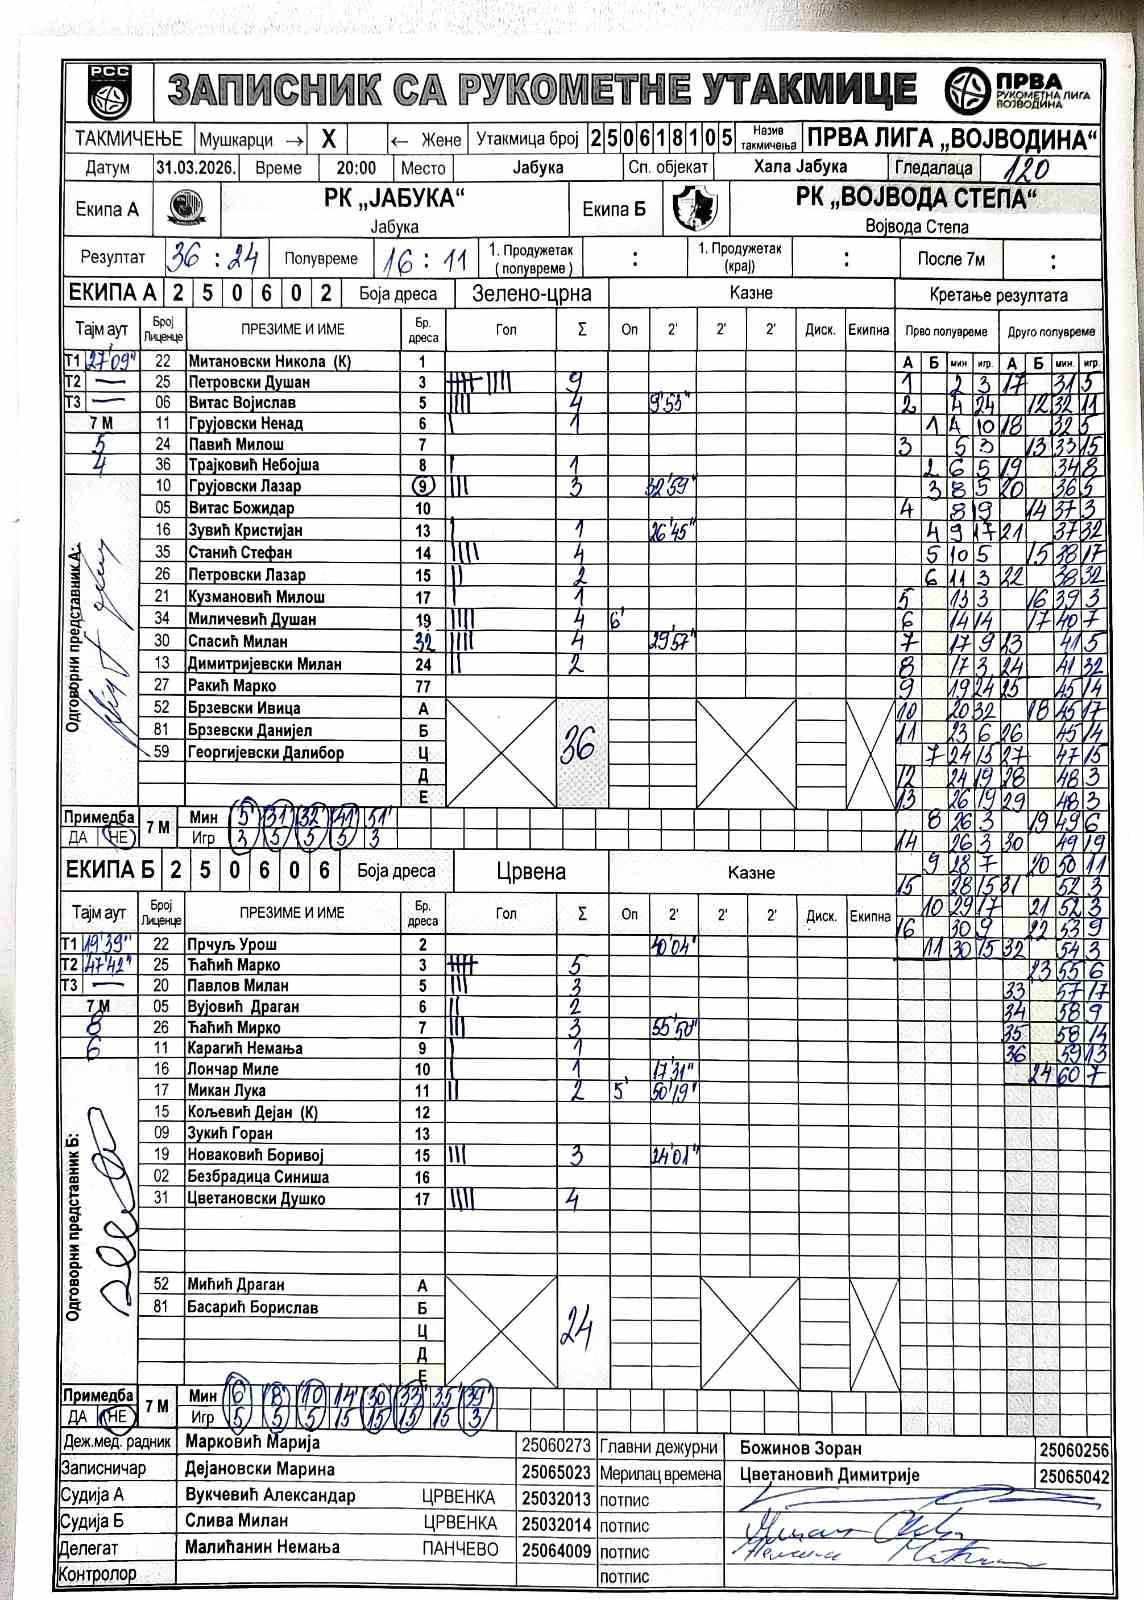 РСС
ЗАПИСНИК СА РУКОМЕТНЕ УТАКМИЦЕ
ПРВА
РУКОМЕТНА ЛИГА
ВОЈВОДИНА
ТАКМИЧЕЊЕ Мушкарци → X ← Жене Утакмица број 2 5 0 6 1 8 1 0 5 Назив такмичења ПРВА ЛИГА „ВОЈВОДИНА“
Датум 31.03.2026. Време 20:00 Место Јабука Сп. објекат Хала Јабука Гледалаца 120
Екипа А РК „ЈАБУКА“ Јабука Екипа Б РК „ВОЈВОДА СТЕПА“ Војвода Степа
Резултат 36 : 24 Полувреме 16 : 11 1. Продужетак (полувреме) : 1. Продужетак (крај) : После 7м :
ЕКИПА А 2 5 0 6 0 2 Боја дреса Зелено-црна Казне Кретање резултата
Тајм аут Број Лиценце ПРЕЗИМЕ И ИМЕ Бр. дреса Гол Σ Оп 2' 2' 2' Диск. Екипна Прво полувреме Друго полувреме
Т1 27'09" 22 Митановски Никола (К) 1 А Б мин игр. А Б мин. игр.
Т2 — 25 Петровски Душан 3 9 1 2 3 17 31 5
Т3 — 06 Витас Војислав 5 4 9'53" 2 4 24 12 32 11
7 М 11 Грујовски Ненад 6 1 1 4 10 18 32 5
5 24 Павић Милош 7 3 5 3 13 33 15
4 36 Трајковић Небојша 8 1 2 6 5 19 34 8
10 Грујовски Лазар 9 3 32'59" 3 8 5 20 36 5
05 Витас Божидар 10 4 8 9 14 37 3
16 Зувић Кристијан 13 1 26'45" 4 9 17 21 37 32
35 Станић Стефан 14 4 5 10 5 15 38 17
26 Петровски Лазар 15 2 6 11 3 22 38 32
21 Кузмановић Милош 17 1 5 13 3 16 39 3
34 Миличевић Душан 19 4 6' 6 14 14 17 40 7
30 Спасић Милан 32 4 29'57" 7 17 9 23 41 5
13 Димитријевски Милан 24 2 8 17 3 24 41 32
27 Ракић Марко 77 9 19 24 25 45 14
52 Брзевски Ивица А 10 20 32 18 45 17
81 Брзевски Данијел Б 36 11 23 6 26 45 14
59 Георгијевски Далибор Ц 7 24 15 27 47 15
Д 12 24 19 28 48 3
Е 13 26 19 29 48 3
Одговорни представник А:
Примедба 7 М Мин 5' 31' 32' 41' 51' 8 26 3 19 49 6
ДА НЕ Игр 3 5 5 5 3 14 26 3 30 49 19
ЕКИПА Б 2 5 0 6 0 6 Боја дреса Црвена Казне 9 28 7 20 50 11
15 28 15 31 52 3
Тајм аут Број Лиценце ПРЕЗИМЕ И ИМЕ Бр. дреса Гол Σ Оп 2' 2' 2' Диск. Екипна 10 29 17 21 52 3
16 30 9 22 53 9
Т1 19'39" 22 Прчуљ Урош 2 40'04" 11 30 15 32 54 3
Т2 47'42" 25 Ћаћић Марко 3 5 23 55 6
Т3 — 20 Павлов Милан 5 3 33 57 17
7 М 05 Вујовић Драган 6 2 34 58 9
8 26 Ћаћић Мирко 7 3 55'50" 35 58 14
6 11 Карагић Немања 9 1 36 59 13
16 Лончар Миле 10 1 17'31" 24 60 7
17 Микан Лука 11 2 5' 50'19"
15 Кољевић Дејан (К) 12
09 Зукић Горан 13
19 Новаковић Боривој 15 3 24'01"
02 Безбрадица Синиша 16
31 Цветановски Душко 17 4
52 Мићић Драган А
81 Басарић Борислав Б 24
Ц
Д
Е
Одговорни представник Б:
Примедба 7 М Мин 6' 8' 10' 14' 30' 33' 35' 39'
ДА НЕ Игр 5 5 5 15 15 15 15 3
Деж.мед. радник Марковић Марија 25060273 Главни дежурни Божинов Зоран 25060256
Записничар Дејановски Марина 25065023 Мерилац времена Цветановић Димитрије 25065042
Судија А Вукчевић Александар ЦРВЕНКА 25032013 потпис
Судија Б Слива Милан ЦРВЕНКА 25032014 потпис
Делегат Малићанин Немања ПАНЧЕВО 25064009 потпис
Контролор потпис